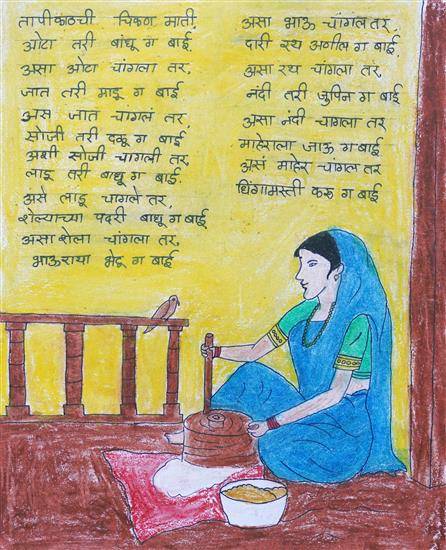 तापीकाठची चिकण माती,
ओटा तरी बांधू ग बाई
असा ओटा चांगला तर,
जात तरी माडू ग बाई
अस जात चांगलं तर,
सोजी तरी दळू ग बाई
अशी सोजी चांगली तर,
लाडू तरी बाधू ग बाई.
असे लाडू चागले तर,
शेल्याच्या पदरी बाधू ग बाई
असा शेला चांगला तर,
भाऊराया भेटू ग बाई
असा भाऊ चांगल तर,
दारी रथ अणील ग बाई
असा रथ चांगला तर,
नंदी तरी जुपिन ग बाई
असा नंदी चागला तर
माहेराला जाऊ ग बाई
असं माहेर चांगल तर
धिंगामस्ती करू ग बाई